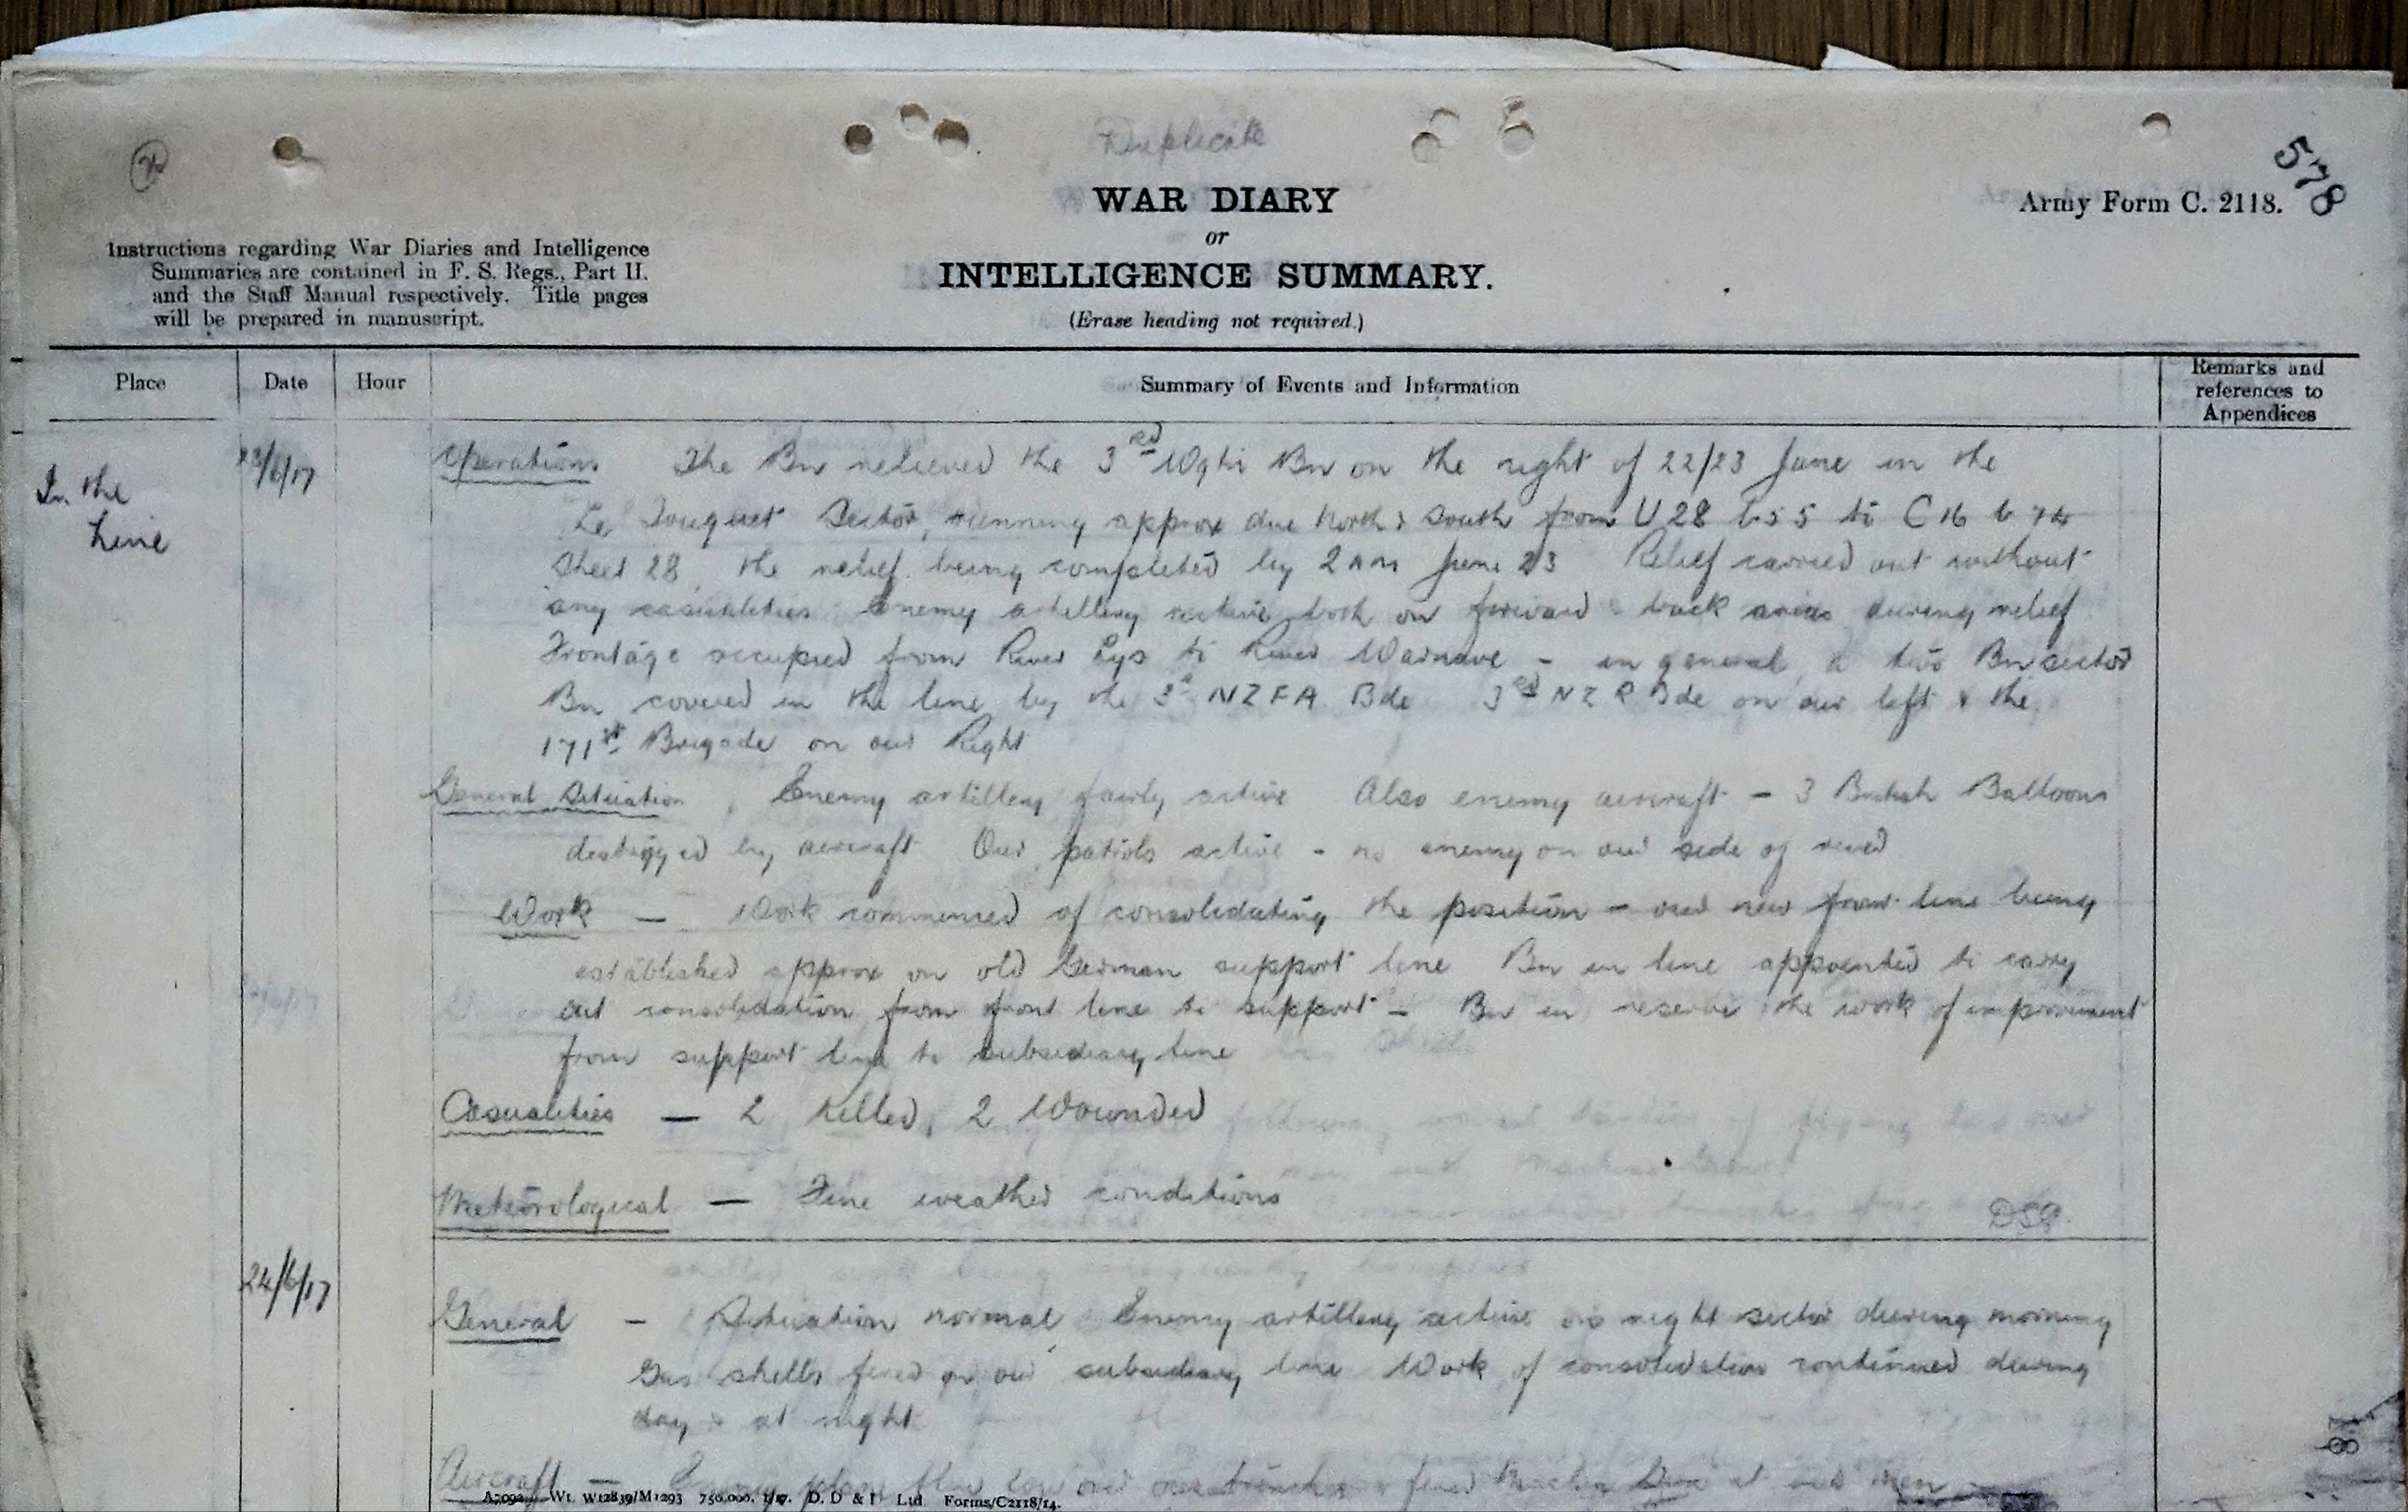 Duplicate
578
WAR DIARY
or
INTELLIGENCE SUMMARY.
(Erase heading not required.)
Army Form C. 2118.
Instructions regarding War Diaries and Intelligence
Summaries are contained in F. S. Regs., Part II.
and the Staff Manual respectively. Title pages
will be prepared in manuscript.
Place Date Hour Summary of Events and Information Remarks and references to Appendices
In the
Line
23/6/17
Operations The Bn relieved the 3rd Wgtn Bn on the night of 22/23 June in the
Le Touquet Sector, running approx due North & South from U 28 b 5 5 to C 16 b 74
Sheet 28, the relief being completed by 2 am June 23 Relief carried out without
any casualties Enemy artillery active both on forward & back areas during relief
Frontage occupied from River Lys to River Warnave - in general, a two Bn sector
Bn covered in the line by the 3rd NZFA Bde 3rd NZR Bde on our left & the
171st Brigade on our Right
General Situation, Enemy artillery fairly active Also enemy aircraft - 3 British Balloons
destroyed by aircraft Our patrols active - no enemy on our side of river
Work - Work commenced of consolidating the position - our new front line being
established approx on old German support line Bn in line appointed to carry
out consolidation from front line to support - Bn in reserve the work of improvement
from support line to subsidiary line
Casualties - 2 Killed, 2 Wounded
Meteorological - Fine weather conditions
24/6/17
General - Situation normal, Enemy artillery active on right sector during morning
Gas shells fired on our subsidiary line Work of consolidation continued during
day & at night
Aircraft - Enemy plane flew low over our trenches & fired Machine Gun at our men
A7092 Wt. W12839/M1293 750,000. 1/17. D. D & L Ltd Forms/C2118/14.